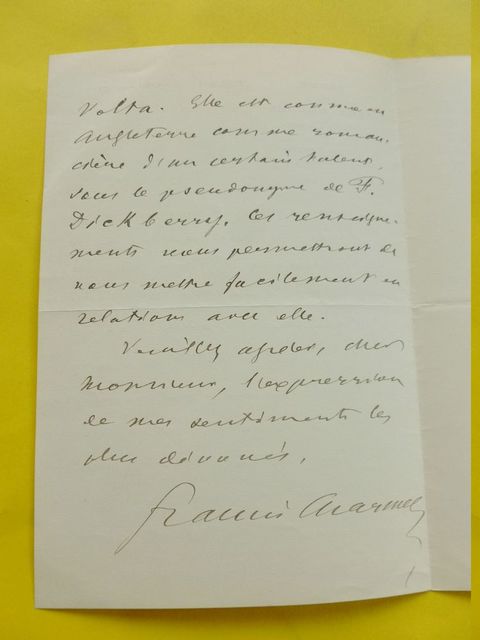 Volta. Elle est connue en
Angleterre comme roman-
cière d'un certain talent,
sous le pseudonyme de F.
Dickberry. Ces renseigne-
ments nous permettront de
nous mettre facilement en
relations avec elle.
Veuillez agréer, cher
Monsieur, l'expression
de mes sentiments les
plus dévoués,
Francis Charmes